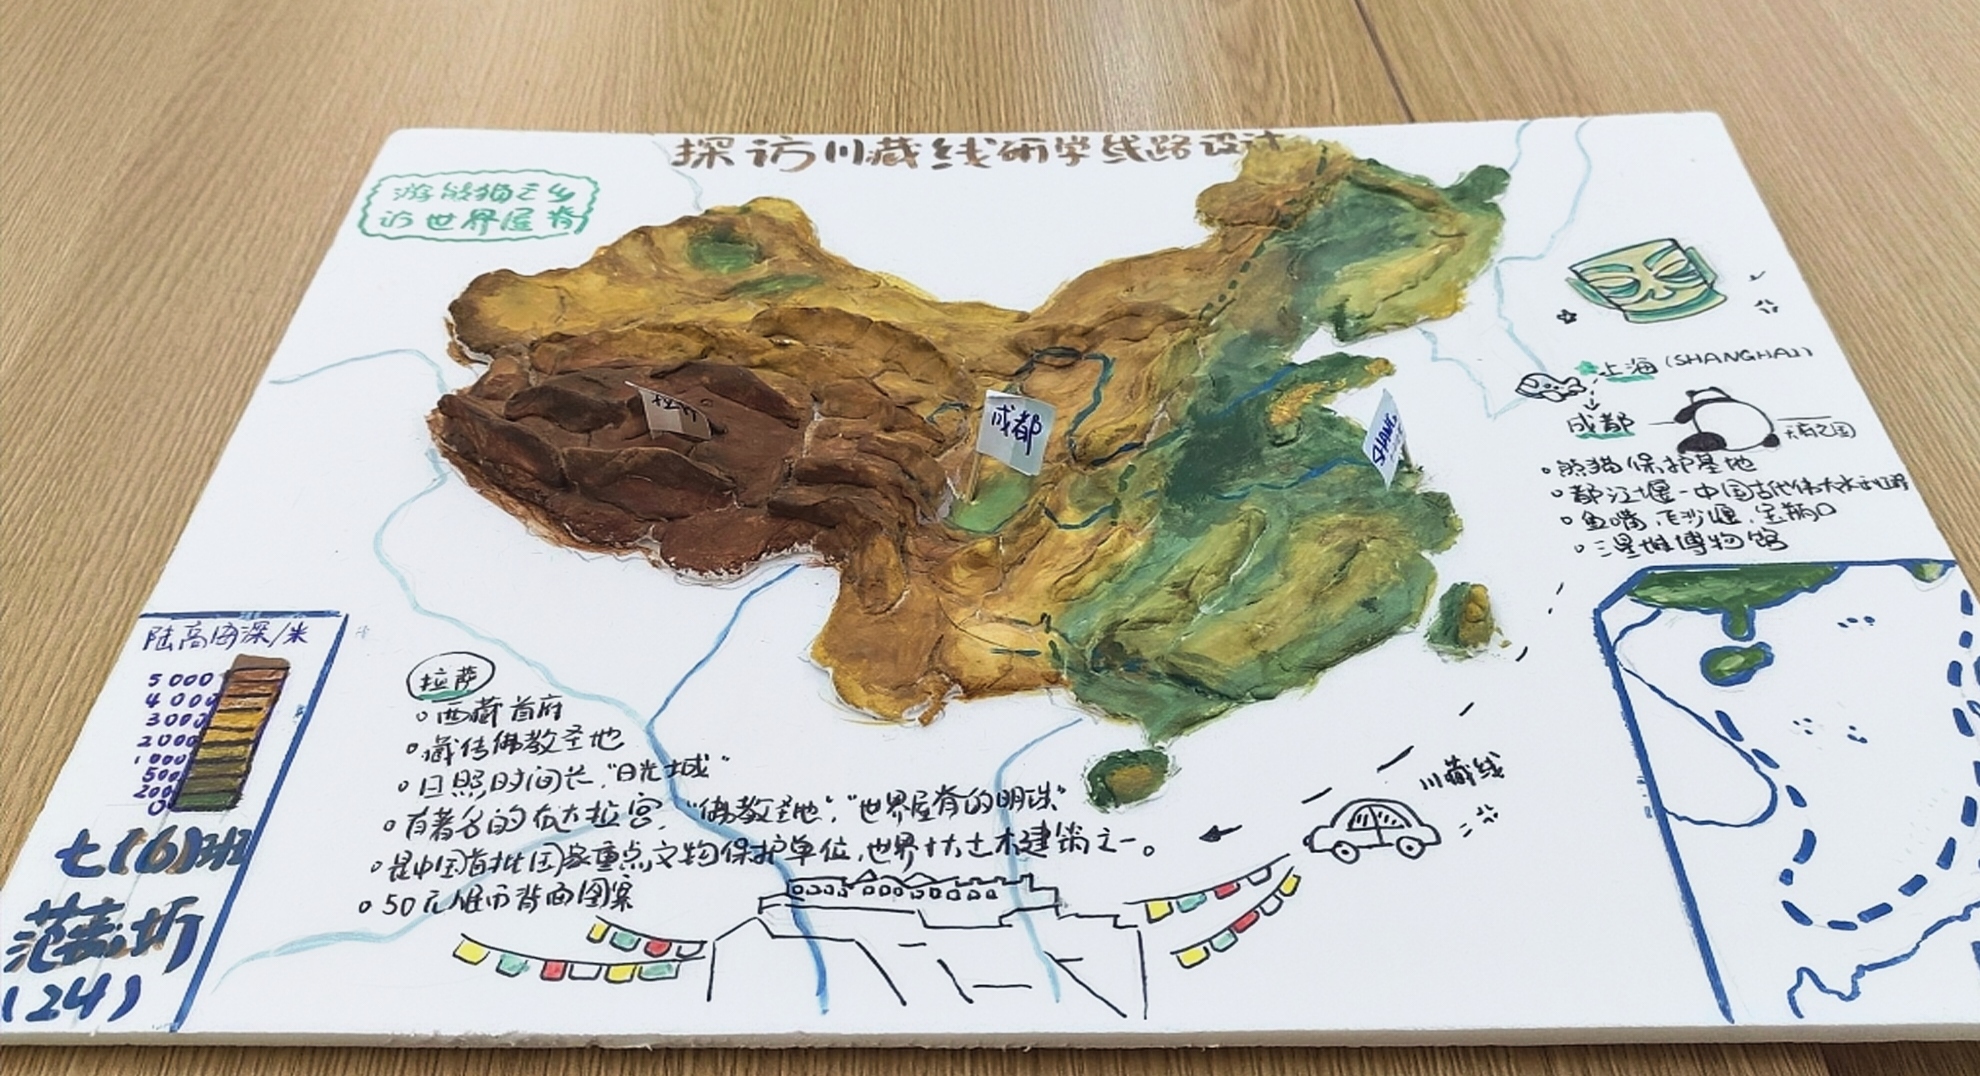 探访川藏线研学线路设计
游熊猫之乡
访世界屋脊
上海(SHANGHAI)
成都
天府之国
。熊猫保护基地
。都江堰-中国古代伟大水利工程
。鱼嘴、飞沙堰、宝瓶口
。三星堆博物馆
成都
SHANG
陆高海深/米
5000
4000
3000
2000
1000
500
200
0
七(6)班
(24)
拉萨
。西藏首府
。藏传佛教圣地
。日照时间长,"日光城"
。有著名的布达拉宫,"佛教圣地","世界屋脊的明珠"
。是中国首批国家重点文物保护单位,世界十大土木建筑之一。
。50元纸币背面图案
川藏线